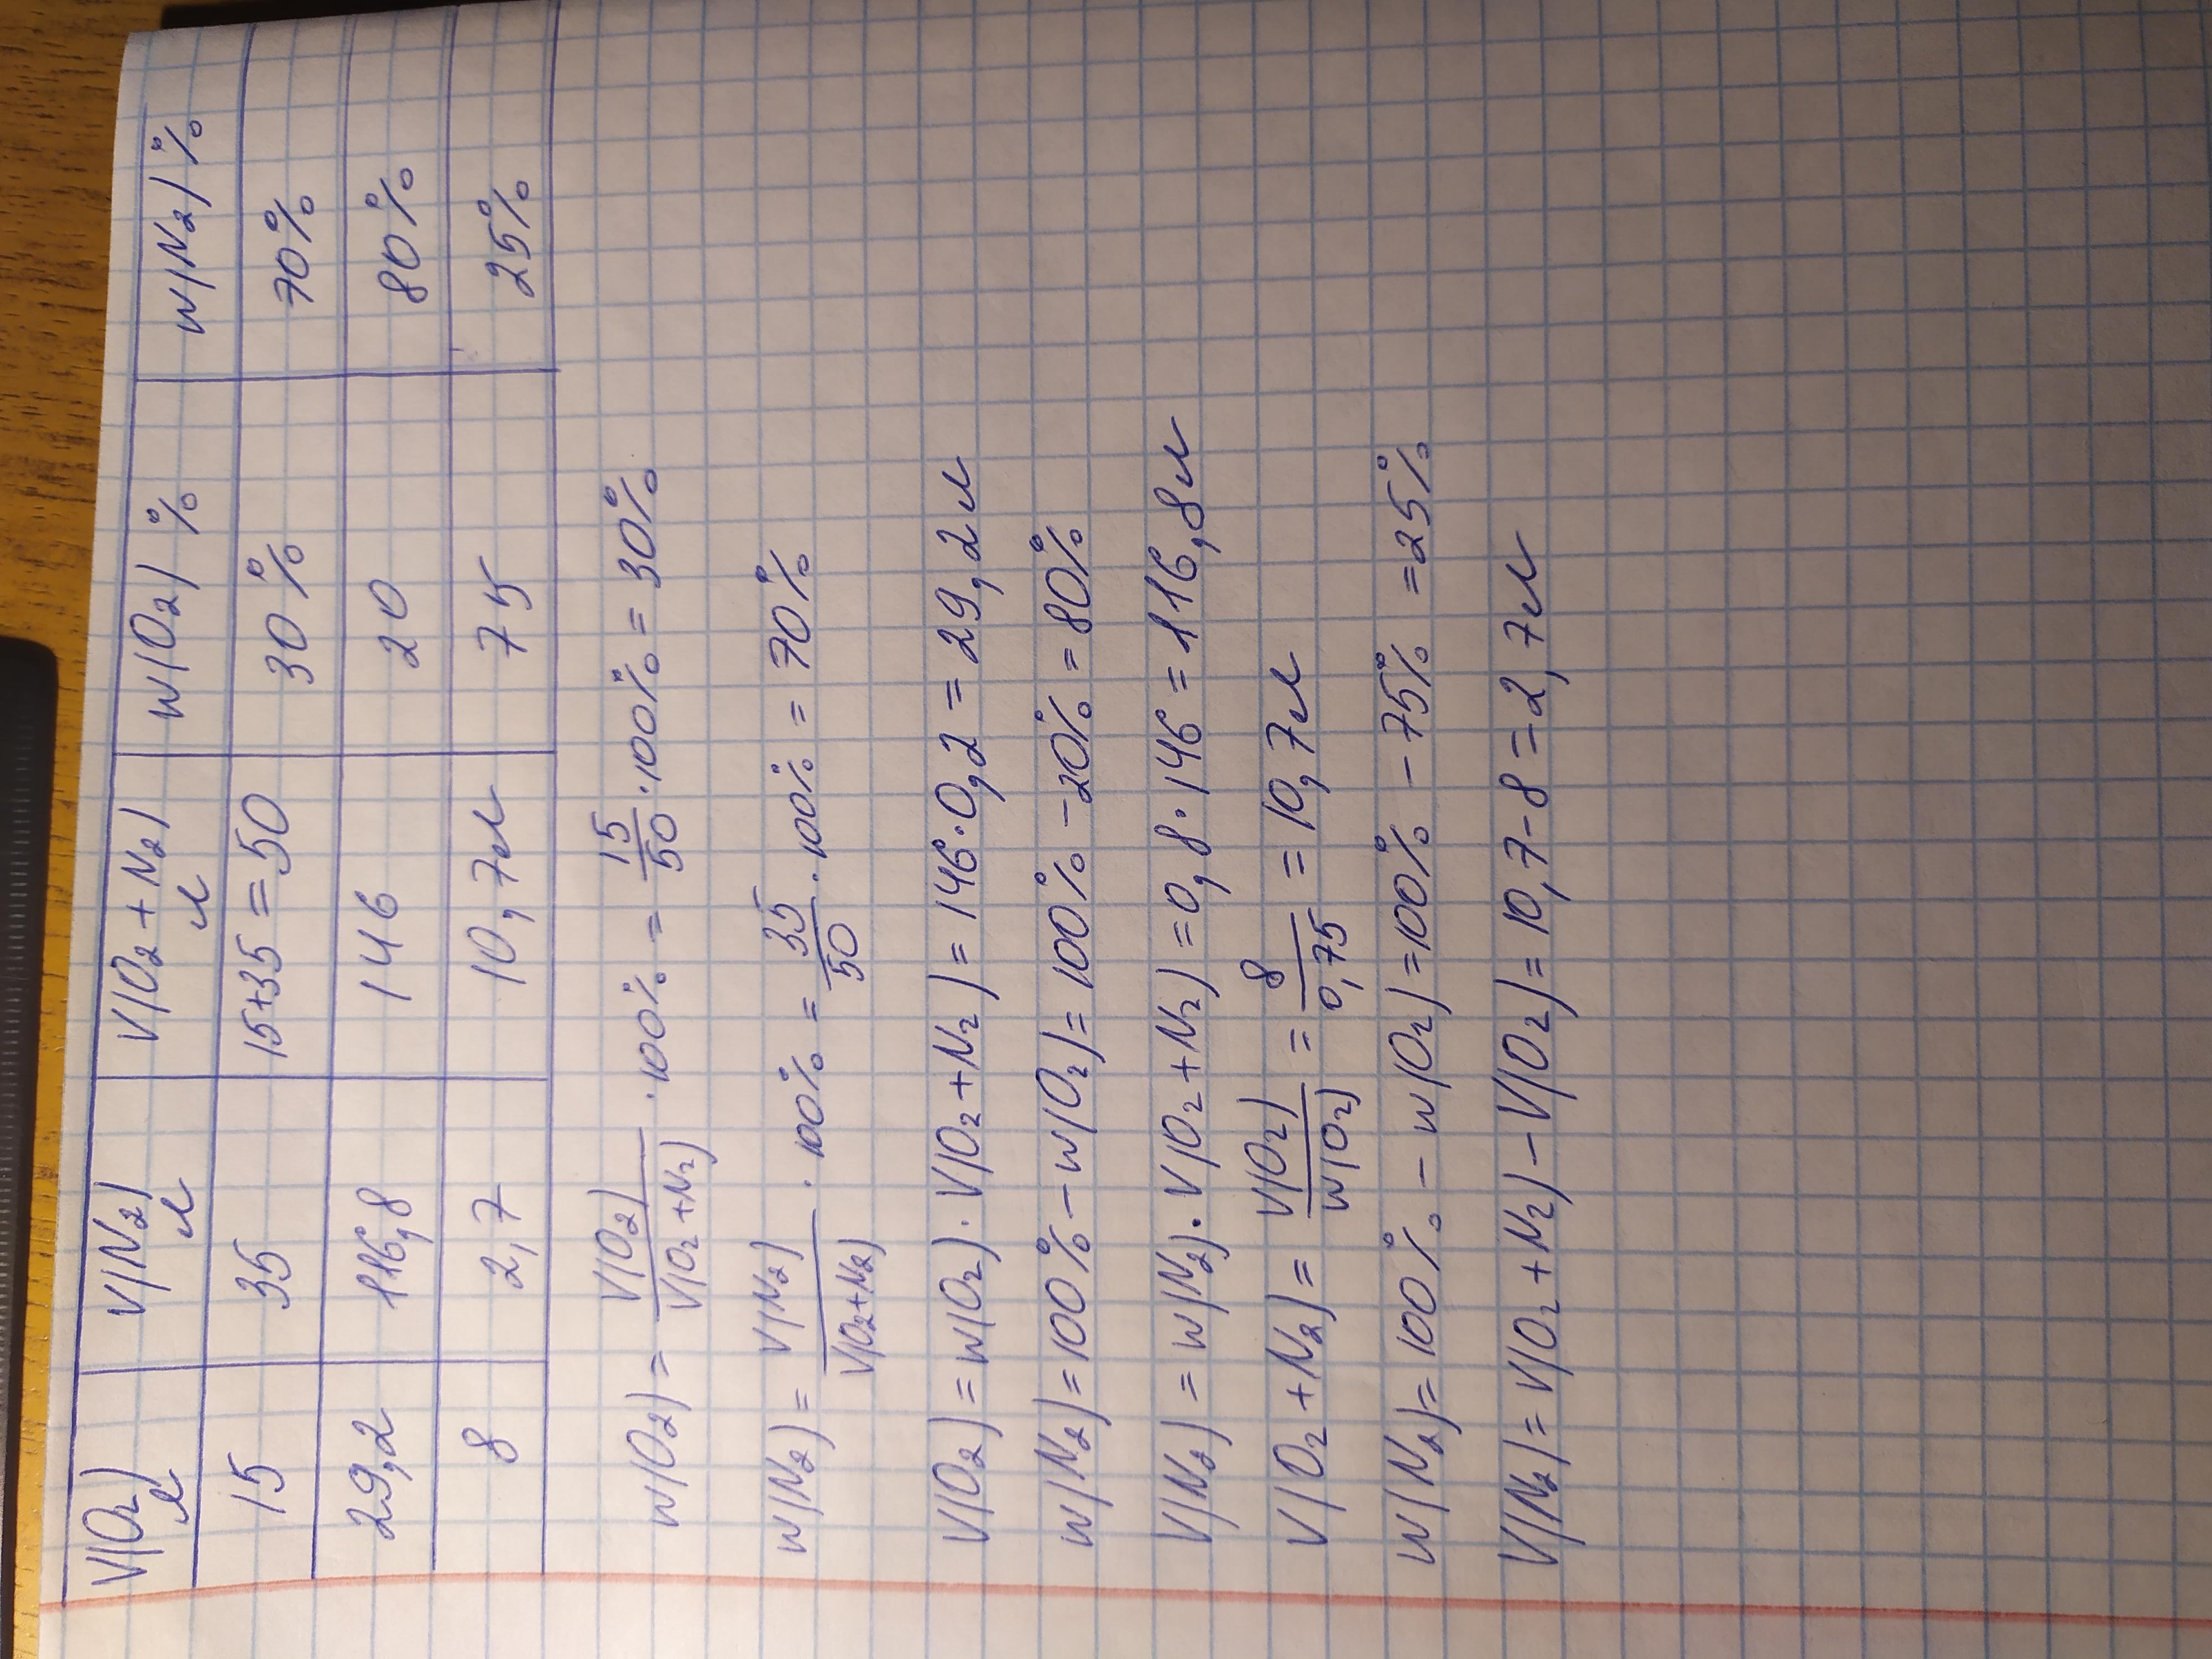 V(O₂) л V(N₂) л V(O₂+N₂) л W(O₂) % W(N₂) %
15 35 15+35=50 30% 70%
29,2 116,8 146 20 80%
8 2,7 10,7л 75 25%
W(O₂) = V(O₂)/V(O₂+N₂) · 100% = 15/50 · 100% = 30%
W(N₂) = V(N₂)/V(O₂+N₂) · 100% = 35/50 · 100% = 70%
V(O₂) = W(O₂) · V(O₂+N₂) = 146 · 0,2 = 29,2л
W(N₂) = 100% − W(O₂) = 100% − 20% = 80%
V(N₂) = W(N₂) · V(O₂+N₂) = 0,8 · 146 = 116,8л
V(O₂+N₂) = V(O₂)/W(O₂) = 8/0,75 = 10,7л
W(N₂) = 100% − W(O₂) = 100% − 75% = 25%
V(N₂) = V(O₂+N₂) − V(O₂) = 10,7 − 8 = 2,7л